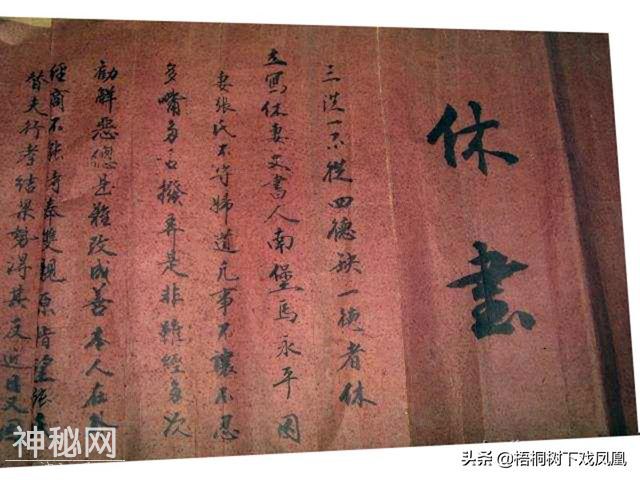 休书
三從一不從四德缺一德者休
立寫休妻文書人南堡馬永平因
妻張氏不守婦道凡事不讓不忍
多嘴多舌撥弄是非雖經多次
勸解惡總是難改成善本人在外
經商不能侍奉雙親原指望張
替夫行孝結果勢得其反近日又
神秘网
头条 @梧桐树下戏凤凰